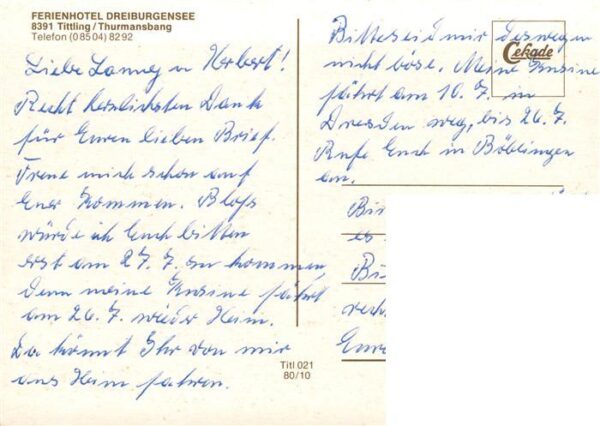 FERIENHOTEL DREIBURGENSEE
8391 Tittling / Thurmansbang
Telefon (0 85 04) 82 92
Liebe u Herbert!
Recht herzlichsten Dank
für Euren lieben Brief.
Freue mich schon auf
Euer Kommen. Bloß
würde ich Euch bitten
erst am 27. 7. zu kommen,
denn meine Kusine fährt
am 26. 7. wieder Heim.
Da könnt Ihr von mir
aus Heim fahren.
Titl 021
80/10
Cekade
Bitte seid mir deswegen
nicht böse. Meine Kusine
fährt am 10. 7. in
Dresden weg, bis 26. 7.
Rufe Euch in Böblingen
an.
Bi
es
Bi
rech
Eure